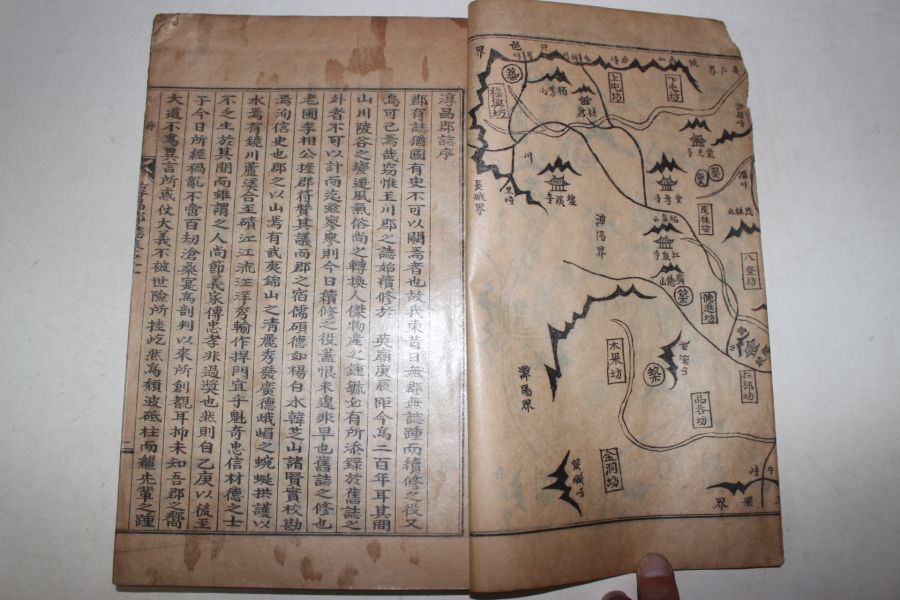 上屯坊
下屯坊
福興坊
潭陽界
長城界
茂林坊
八登坊
木果坊
潭陽界
石部坊
品谷坊
金洞坊
淳昌郡誌序
郡有誌猶國有史不可以闕焉者也故我東昔日無郡無誌踵而續修之役又
烏可已焉哉竊惟玉川郡之誌始續修於 英廟庚辰距今爲二百年耳其間
山川陵谷之變遷風氣俗尚之轉換人傑物産之鍾毓必有所添錄於舊誌之
外者不可以計而迄玆寥寥則今日續修之役蓋恨未遑非早也舊誌之修也
老圃李相公握郡符贊其議而郡之宿儒碩德如楊白水韓芝山諸賢實校勘
焉洵信史也郡之以山焉有武夷錦山之淸麗秀發廣德峨嵋之蜿蜒拱護以
水焉有鏡川廬溪合玉磧江江流汪洋秀輸作捍門宜乎魁奇忠信材德之士
不之生於其間而雖謂之人尚節義家傳忠孝非過奬也然則自乙庚以後至
于今日所經禍亂不啻百劫滄桑寔爲剖判以來所創覩耳抑未知吾郡之嚮
大道不爲異言所惑仗大義不被世險所挫屹然爲頹波砥柱而繼先輩之踵